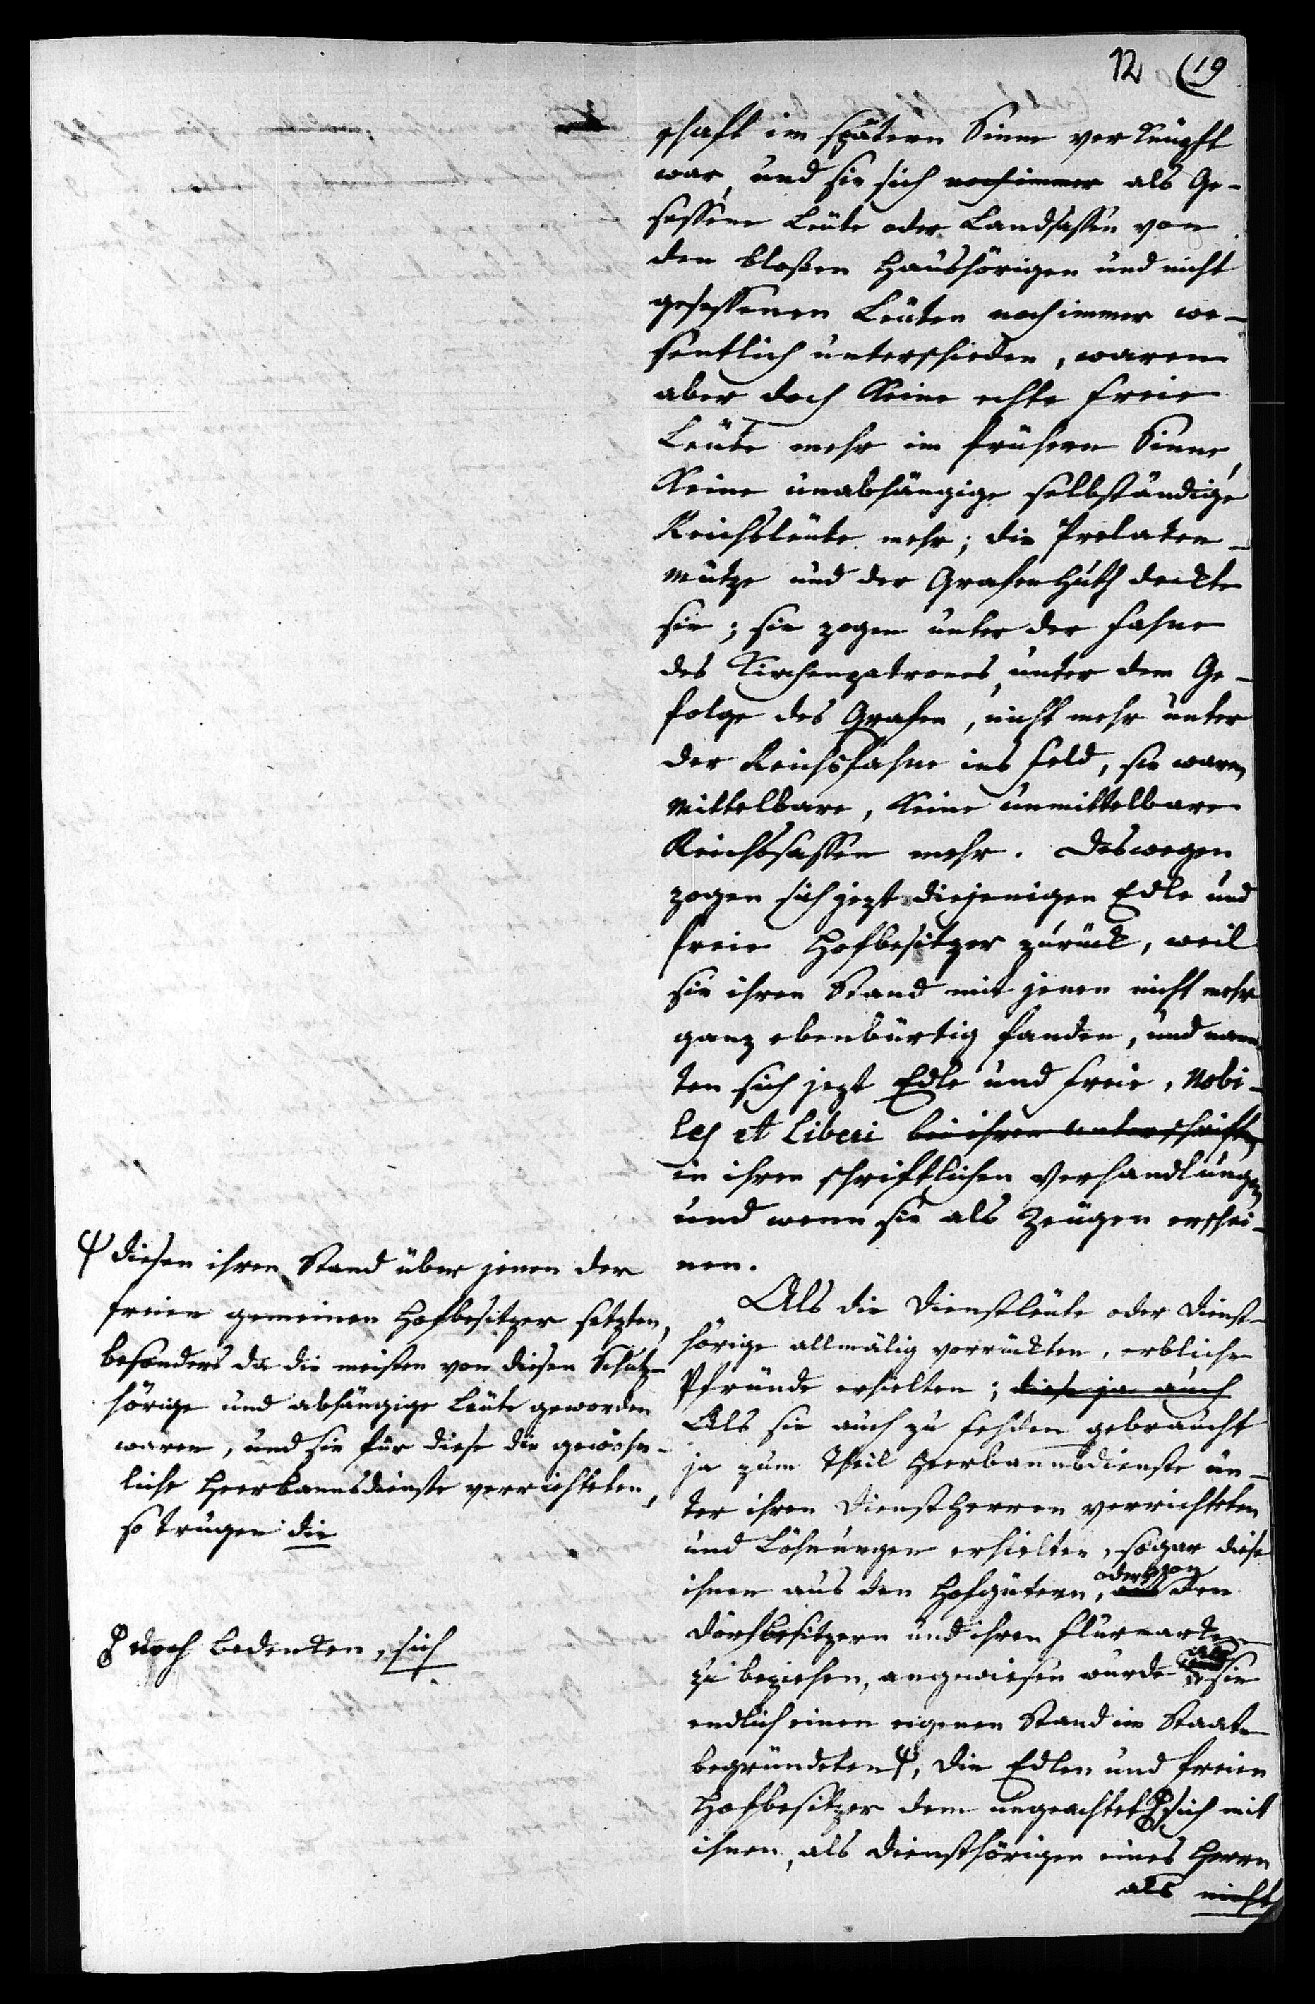 12 (19
schaft im spätern Sinne verknüpft
war, und sie sich noch immer als Ge-
sassene Leüte oder Landsassen von
den bloßen Haushörigen und nicht
gesessenen Leüten noch immer we-
sentlich unterschieden, waren
aber doch keine echte freie
Leüte mehr im frühern Sinne,
keine unabhängige selbständige
Reichsleüte mehr; die Prelaten-
mütze und der Grafenhuth deckte
sie; sie zogen unter der Fahne
des Kirchenpatrones, unter dem Ge-
folge des Grafen, nicht mehr unter
der Reichsfahne ins Feld, sie waren
Mittelbare, keine unmittelbare
Reichssassen mehr. Deswegen
zogen sich jezt diejenigen Edle und
freie Hofbesitzer zurück, weil
sie ihren Stand mit jenen nicht mehr
ganz ebenbürtig fanden, und nann
ten sich jezt Edle und freie, Nobi-
les et Liberi bei ihren Unterschriften
in ihren schriftlichen Verhandlungen
und wenn sie als Zeügen erschei-
nen.
Als die Dienstleüte oder Dienst-
hörige allmälig vorrückten, erbliche
Pfründe erhielten; diese ja auch
Als sie auch zu Fehden gebraucht
ja zum Theil Heerbannsdienste un-
ter ihren Dienstherren verrichteten
und Löhnungen erhielten, sogar diese
ihnen aus den Hofgütern, oder von den
Dorfbesitzern und ihren Flurmarken
zu beziehen, angewiesen wurde als sie
endlich einen eigenen Stand im Staate
begründeten ψ, die Edlen und freien
Hofbesitzer dem ungeachtet sich mit
ihnen, als Diensthörigen eines Herrn
als nicht
ψ diesen ihren Stand über jenen der
freien gemeinen Hofbesitzer setzten,
besonders da die meisten von diesen Schutz-
hörige und abhängige Leüte geworden
waren, und sie für diese die gewöhn-
liche Heerbannsdienste verrichteten,
so trugen die
noch Bedenken, sich